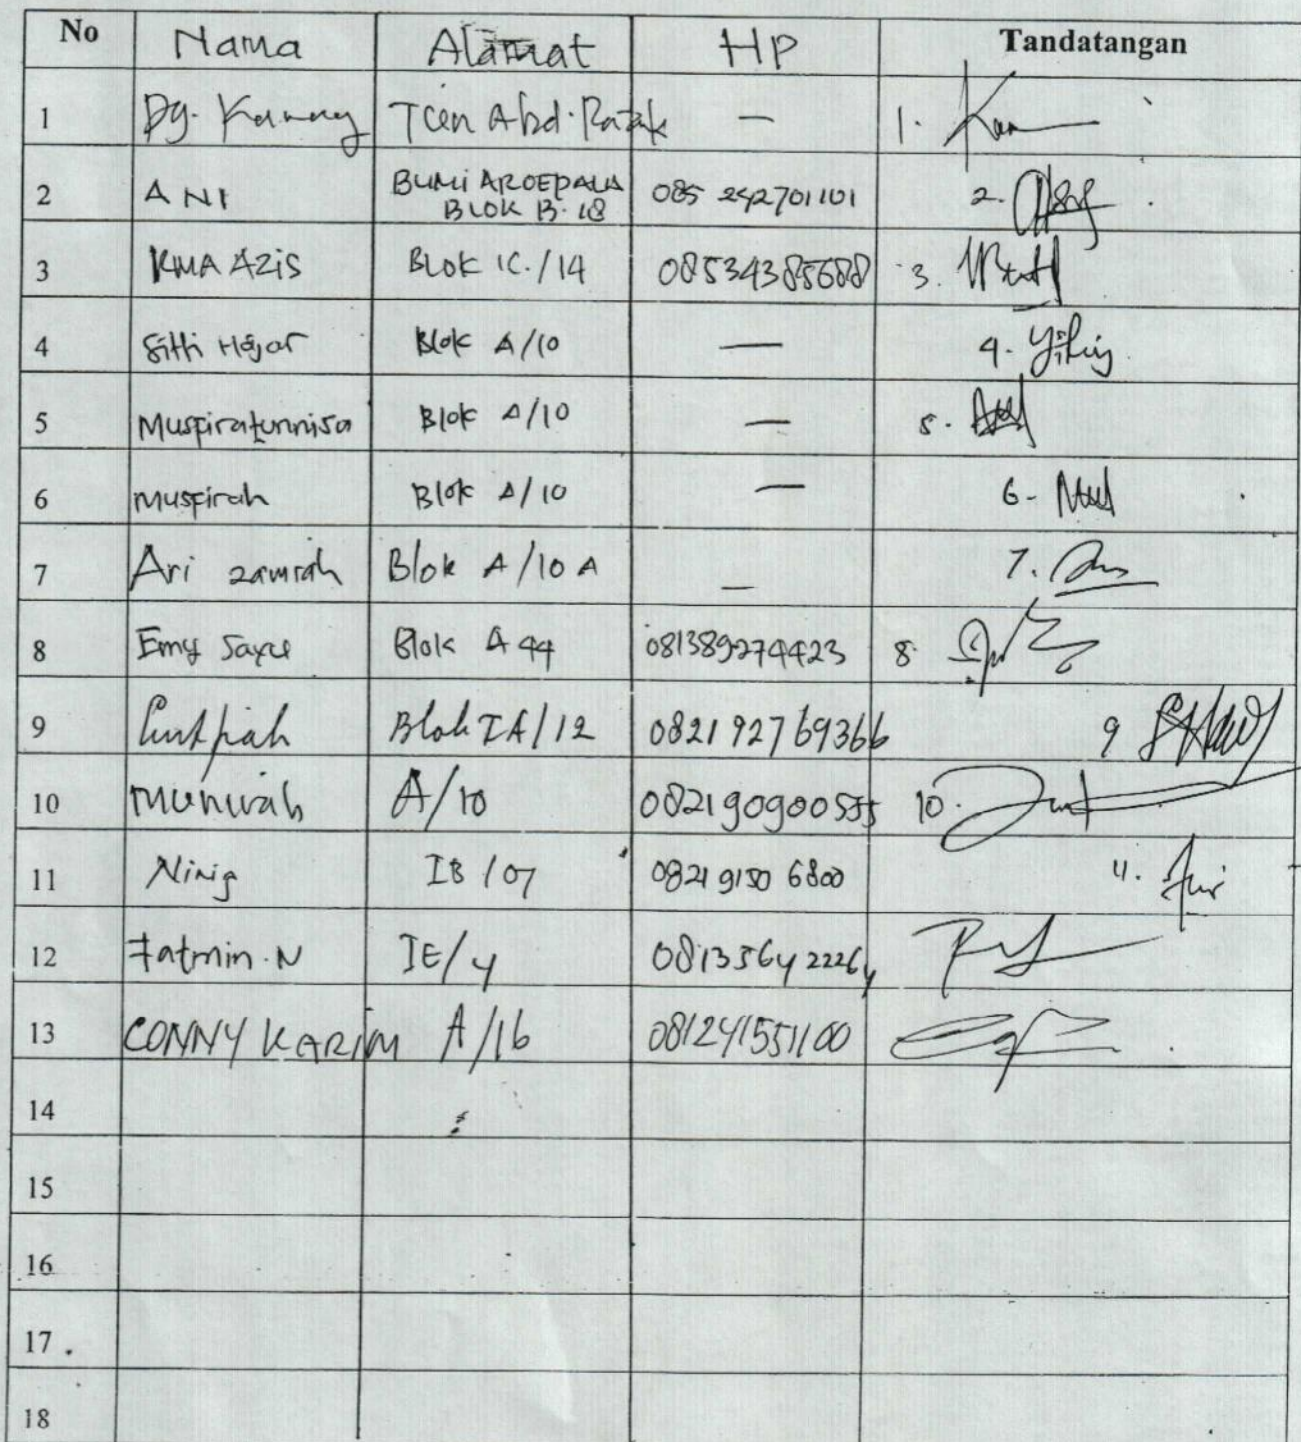 No Nama Alamat HP Tandatangan
1 Dg. Kanang Abd. Razak — 1.
2 ANI BUMI AROEPALA 085 242701101 2.
BLOK B. 18
3 KMA AZIS BLOK IC./14 08534385688 3.
4 Sitti Hajar Blok A/10 — 4.
5 Muspiratunnisa Blok A/10 — 5.
6 Muspirah Blok A/10 — 6-
7 Ari zamrah Blok A/10 A — 7.
8 Emy Blok A 44 081389274423 8.
9 Blok IA/12 082192769366 9
10 Munirah A/10 082190900555 10.
11 Ninig IB /07 0821 9150 6800 11.
12 Fatmin. N IE/4 081356422264
13 CONNY KARIM A/16 081241551100
14
15
16
17
18